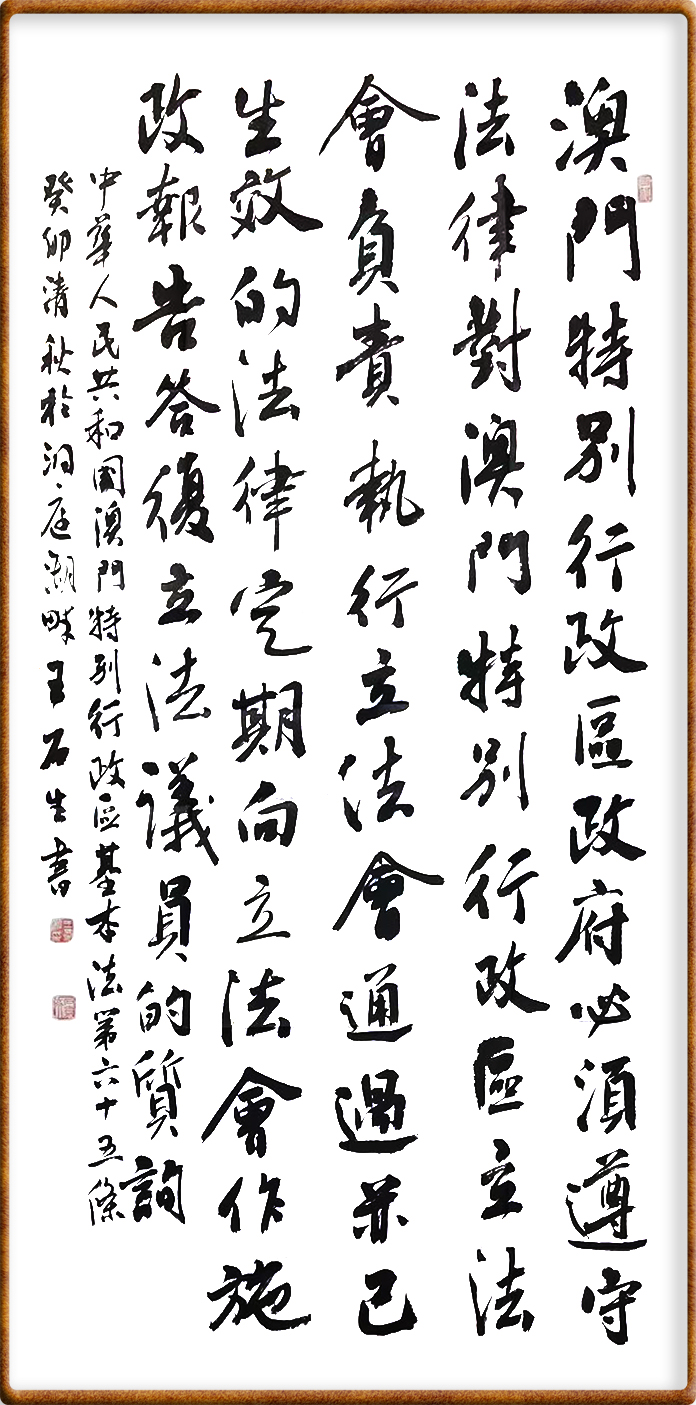 澳門特別行政區政府必須遵守
法律對澳門特別行政區立法
會負責執行立法會通過并已
生效的法律定期向立法會作施
政報告答復立法議員的質詢
中華人民共和國澳門特別行政區基本法第六十五條
癸卯清秋於洞庭湖畔王石生書